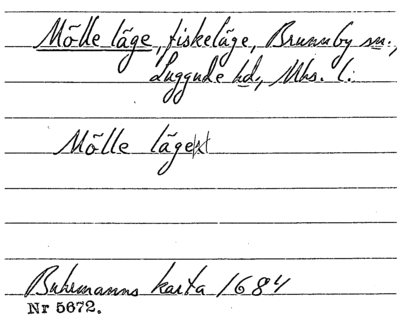 Mölle läge, fiskeläge, Brunnby sn.,
Luggude hd., Mhs. l.
Mölle läge
Buhrmanns karta 1684
Nr 5672.